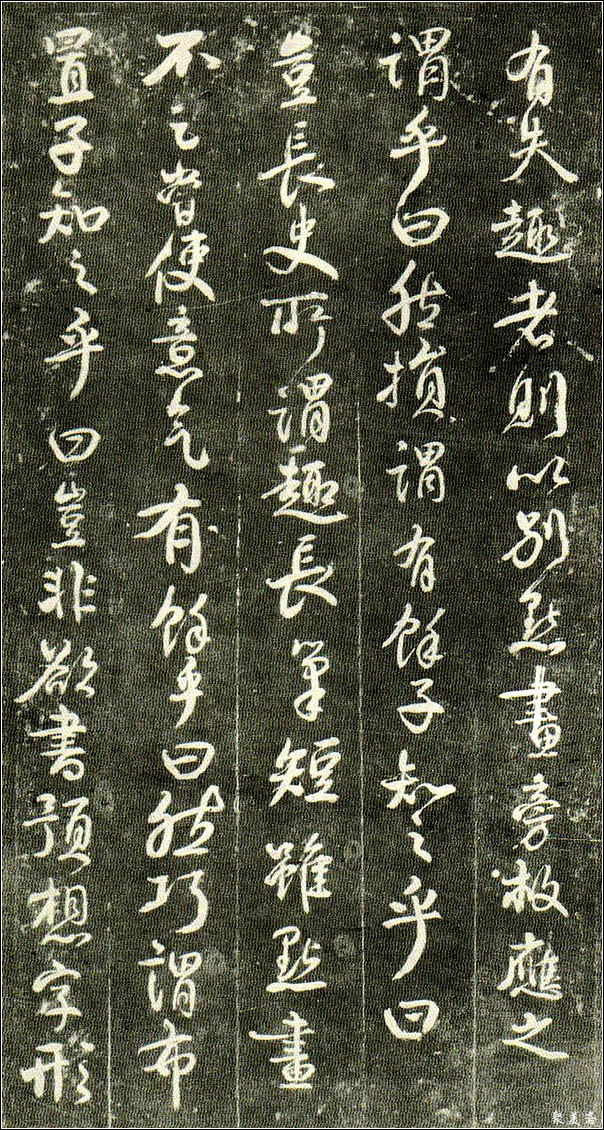 有失趣者則以別點畫旁救應之
謂乎曰然損謂有餘子知之乎曰
豈長史所謂趣長筆短雖點畫
不足常使意氣有餘乎曰然巧謂布
置子知之乎曰豈非欲書預想字形
聚美斋